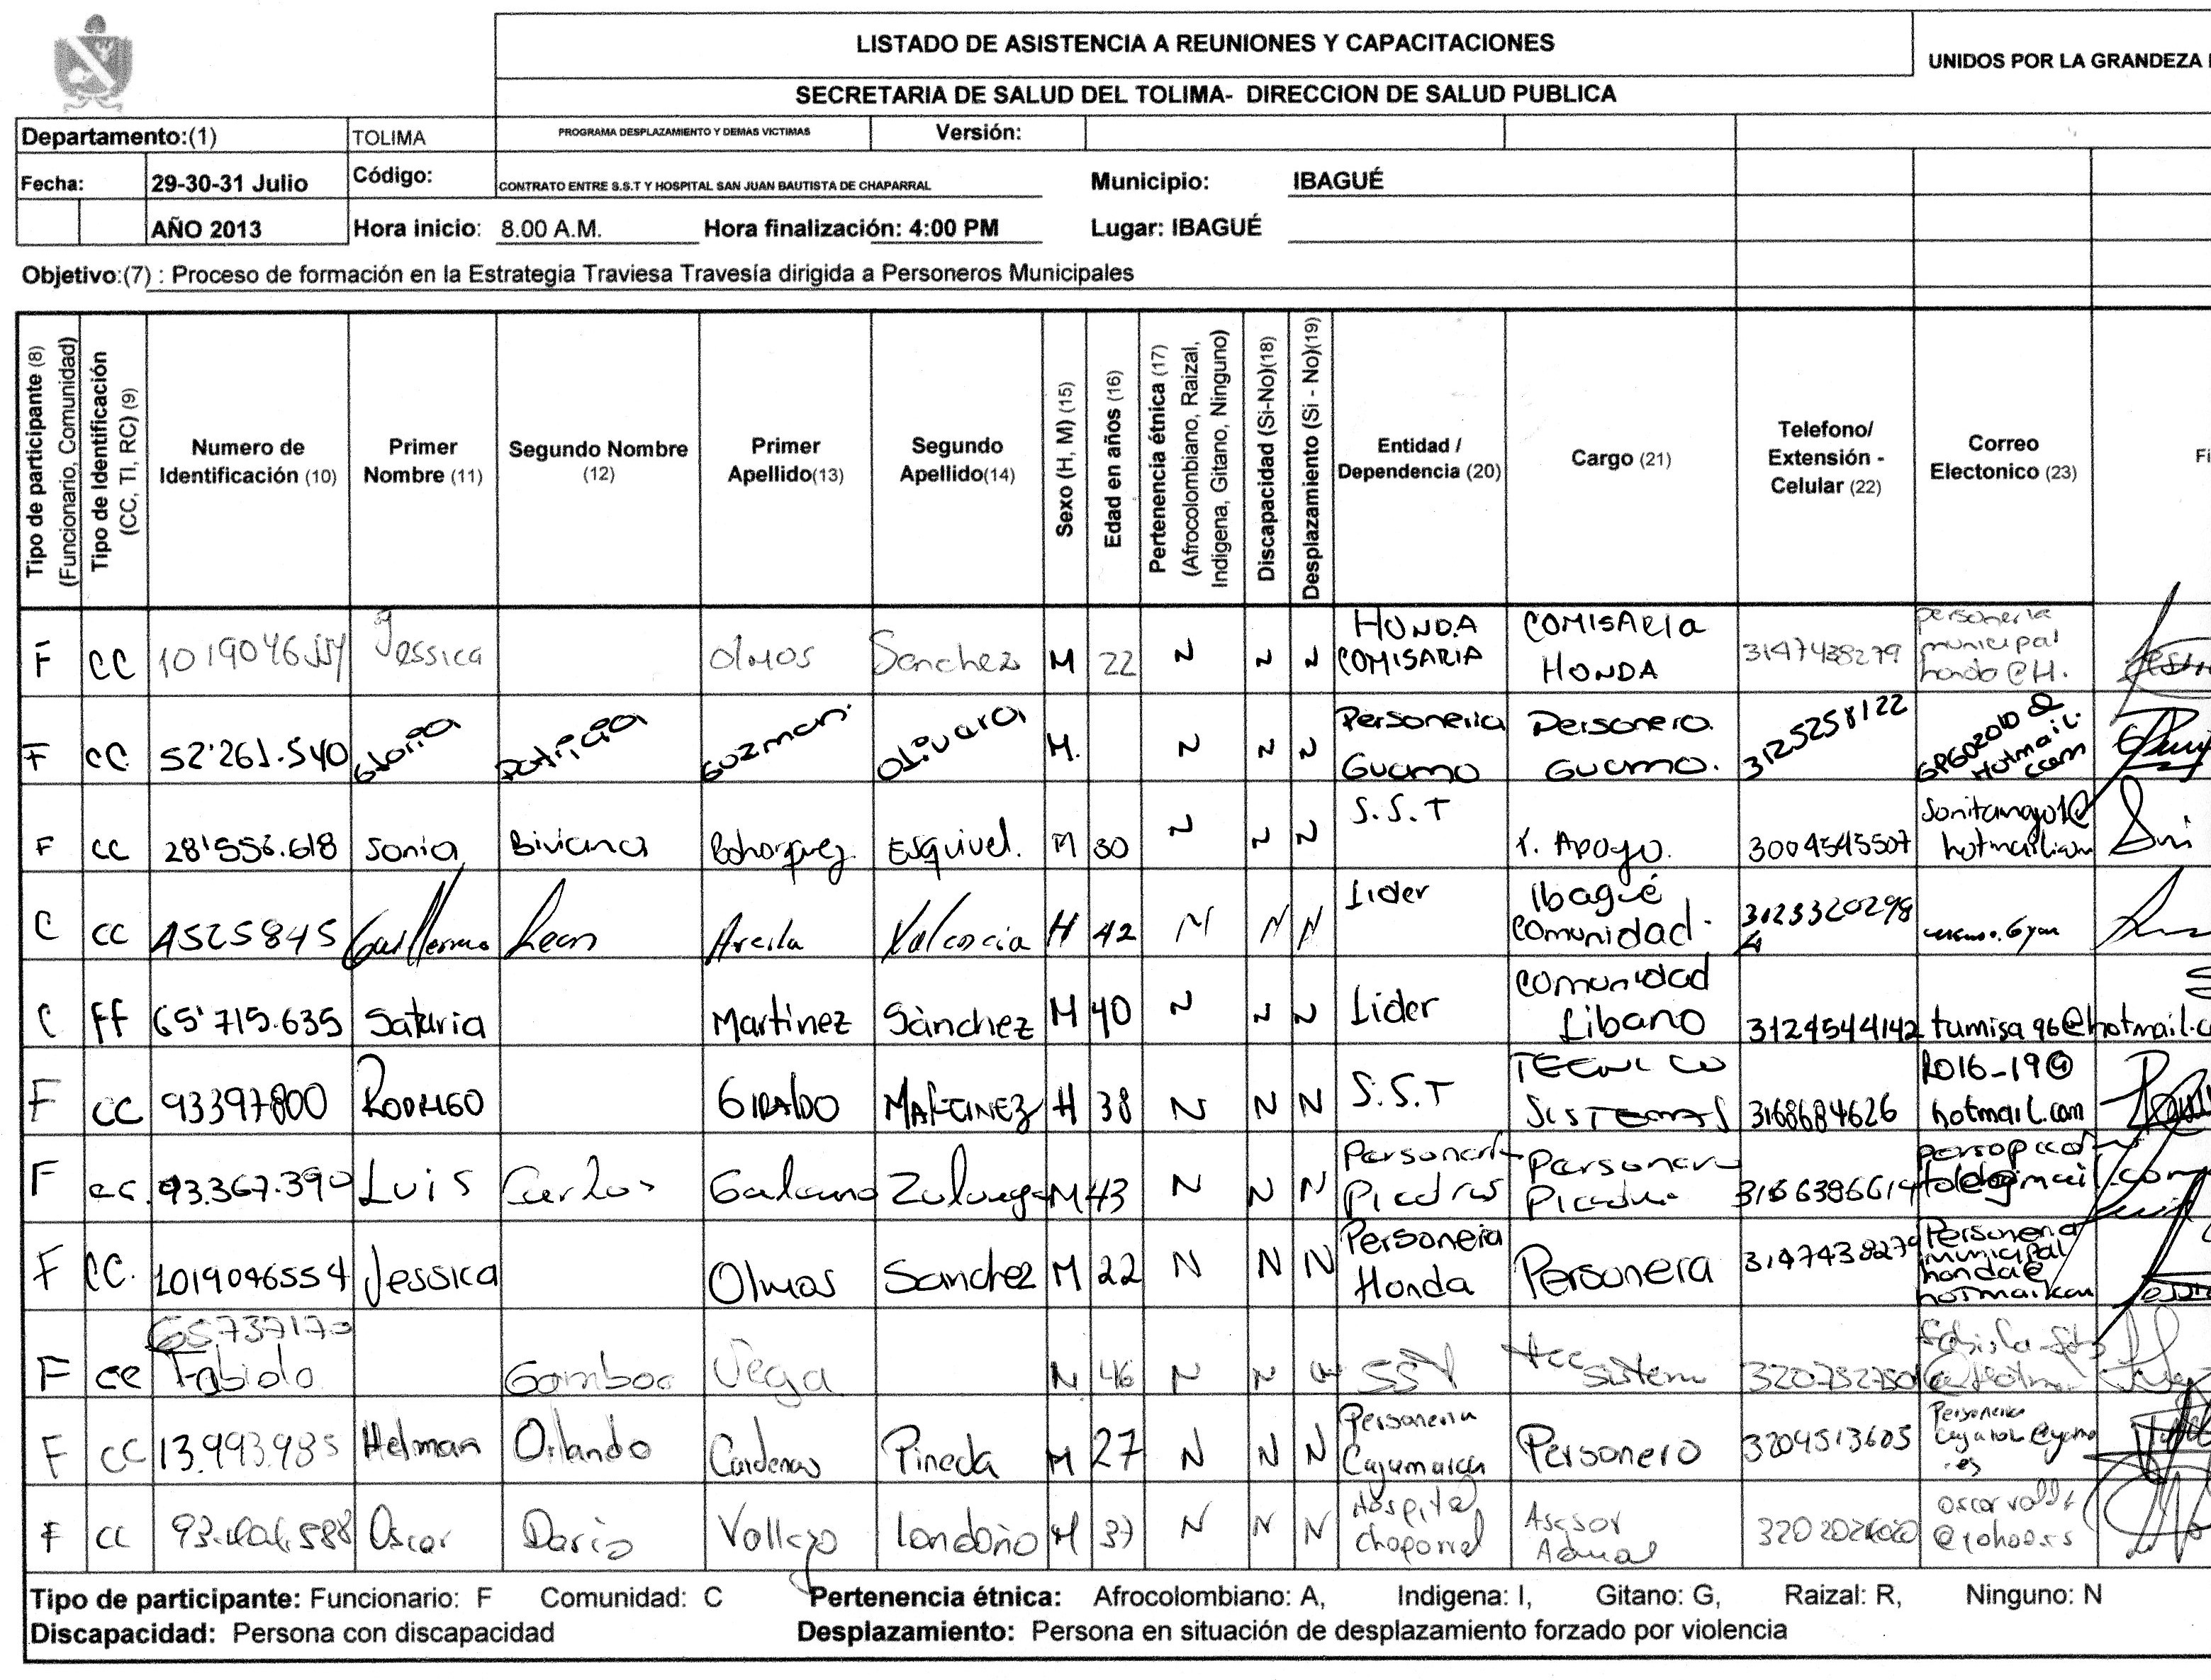 LISTADO DE ASISTENCIA A REUNIONES Y CAPACITACIONES
UNIDOS POR LA GRANDEZA
SECRETARIA DE SALUD DEL TOLIMA- DIRECCION DE SALUD PUBLICA
Departamento:(1) TOLIMA PROGRAMA DESPLAZAMIENTO Y DEMAS VICTIMAS Versión:
Fecha: 29-30-31 Julio Código: CONTRATO ENTRE S.S.T Y HOSPITAL SAN JUAN BAUTISTA DE CHAPARRAL Municipio: IBAGUÉ
AÑO 2013 Hora inicio: 8.00 A.M. Hora finalización: 4:00 PM Lugar: IBAGUÉ
Objetivo:(7) : Proceso de formación en la Estrategia Traviesa Travesía dirigida a Personeros Municipales
Tipo de participante (8)
(Funcionario, Comunidad)
Tipo de Identificación
(CC, TI, RC) (9)
Numero de
Identificación (10)
Primer
Nombre (11)
Segundo Nombre
(12)
Primer
Apellido(13)
Segundo
Apellido(14)
Sexo (H, M) (15)
Edad en años (16)
Pertenencia étnica (17)
(Afrocolombiano, Raizal,
Indigena, Gitano, Ninguno)
Discapacidad (Si-No)(18)
Desplazamiento (Si - No)(19)
Entidad /
Dependencia (20)
Cargo (21)
Telefono/
Extensión -
Celular (22)
Correo
Electonico (23)
F CC Jessica Olmos Sanchez M 22 N N N
HONDA
COMISARIA
COMISARIA
HONDA
3147438279
personeria
municipal
F CC 52'261.540 Gloria Patricia Guzman Olivara M. N N N
Personeria
Guamo
Personera
Guamo.
3125258122
GPG02010@
Hotmail.
F CC 281556.618 Sonia Biviana Bohorquez Esquivel. M 30 N N N
S.S.T
Apoyo.
3004545507
C CC 4525845 Guillermo Leon Arcila Valencia H 42 N N N
Lider
Ibagué
Comunidad
C ff 65'715.635 Saturia Martinez Sànchez M 40 N N N
Lider
Comunidad
Libano
3124544142
tumisa96@hotmail.c
F CC 93397800 RODRIGO GIRALDO MARTINEZ H 38 N N N
S.S.T
TECNICO
SISTEMAS
3168684626
R016-19@
hotmail.com
F cc. 93.367.390 Luis Carlos Galeano Zuluaga M 43 N N N
Piedras
F CC. 1019046554 Jessica Olmos Sanchez M 22 N N N
Personeria
Honda
Personera
3147438279
Personeria
municipal
honda@
F CC 65737170
Fabiola Gamboa Vega 46 N N
SST
Sistem
F CC 13.993.985 Helman Orlando Cardenas Pineda M 27 N N N
Personeria
Cajamarca
Personero
3204513605
F CC Oscar Dario Vallejo Londoño M 37 N N N
Hospital
Chaparral
Asesor
Tipo de participante: Funcionario: F Comunidad: C Pertenencia étnica: Afrocolombiano: A, Indigena: I, Gitano: G, Raizal: R, Ninguno: N
Discapacidad: Persona con discapacidad Desplazamiento: Persona en situación de desplazamiento forzado por violencia